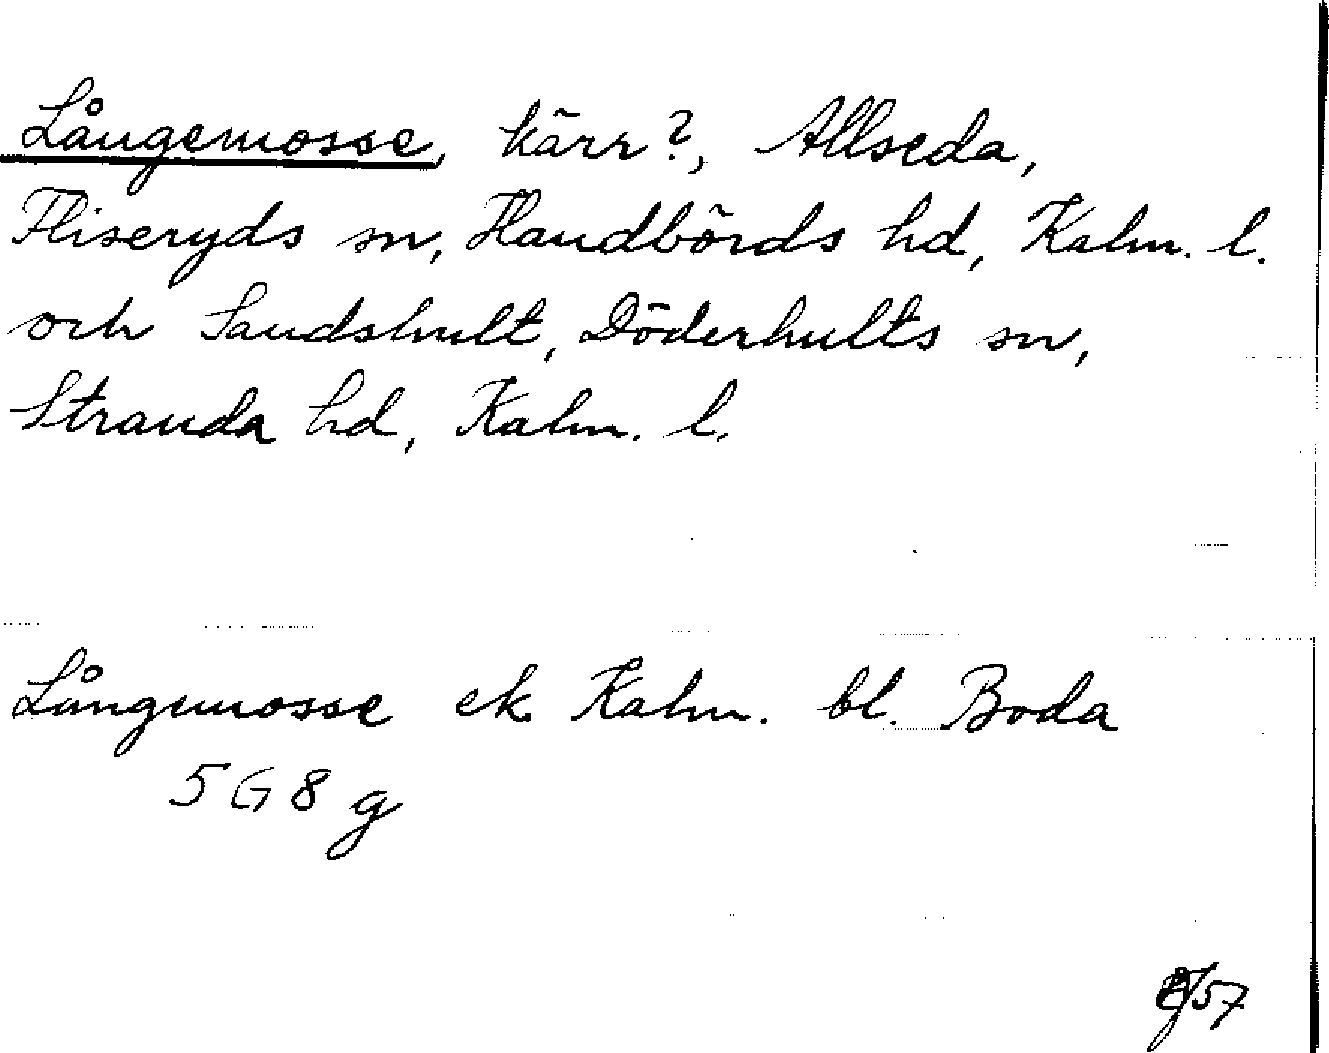 Långemosse, kärr?, Allseda,
Fliseryds sn, Handbörds hd, Kalm. l.
och Sandshult, Döderhults sn,
Stranda hd, Kalm. l.
Långemosse ek. Kalm. bl. Boda
5 G 8 g
/57